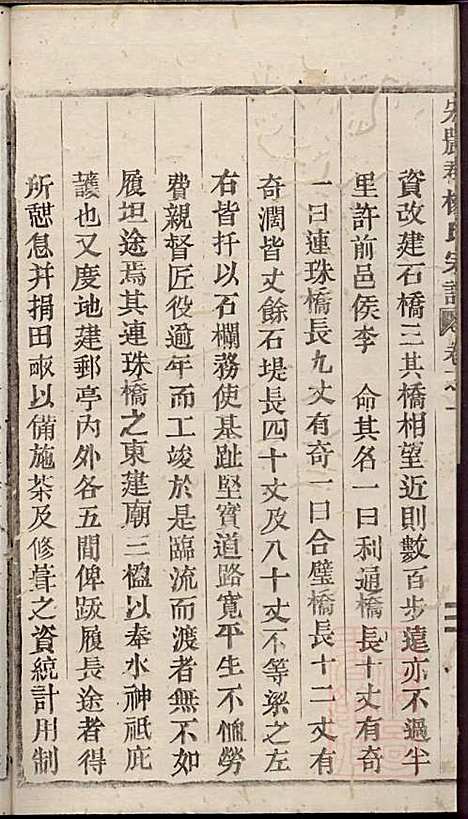 農郡楊氏宗譜 卷之一
資改建石橋三其橋相望近則數百步遠亦不過半
里許前邑侯李 命其名一曰利通橋長十丈有奇
一曰連珠橋長九丈有奇一曰合璧橋長十二丈有
奇濶皆丈餘石堤長四十丈及八十丈不等梁之左
右皆扞以石欄務使基趾堅實道路寬平生不憚勞
費親督匠役逾年而工竣於是臨流而渡者無不如
履坦途焉其連珠橋之東建廟三楹以奉水神祇庇
護也又度地建郵亭內外各五間俾跋履長途者得
所憩息并捐田畝以備施茶及修葺之資統計用制